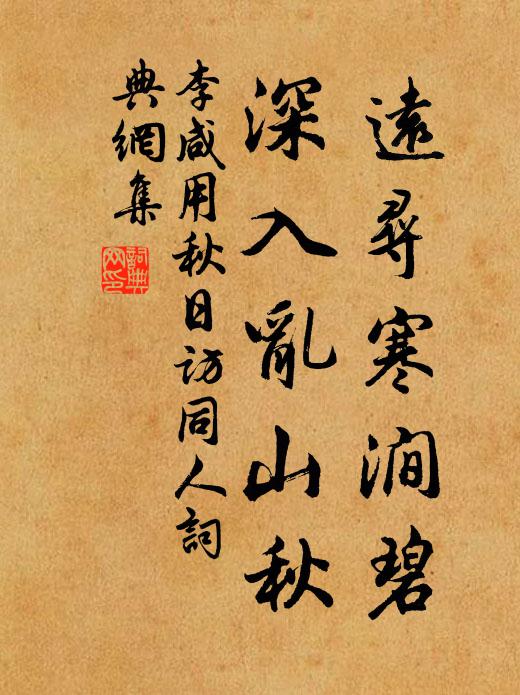 遠尋寒澗碧
深入亂山秋
李咸用秋日訪同人詞
典網集
詞典
网印